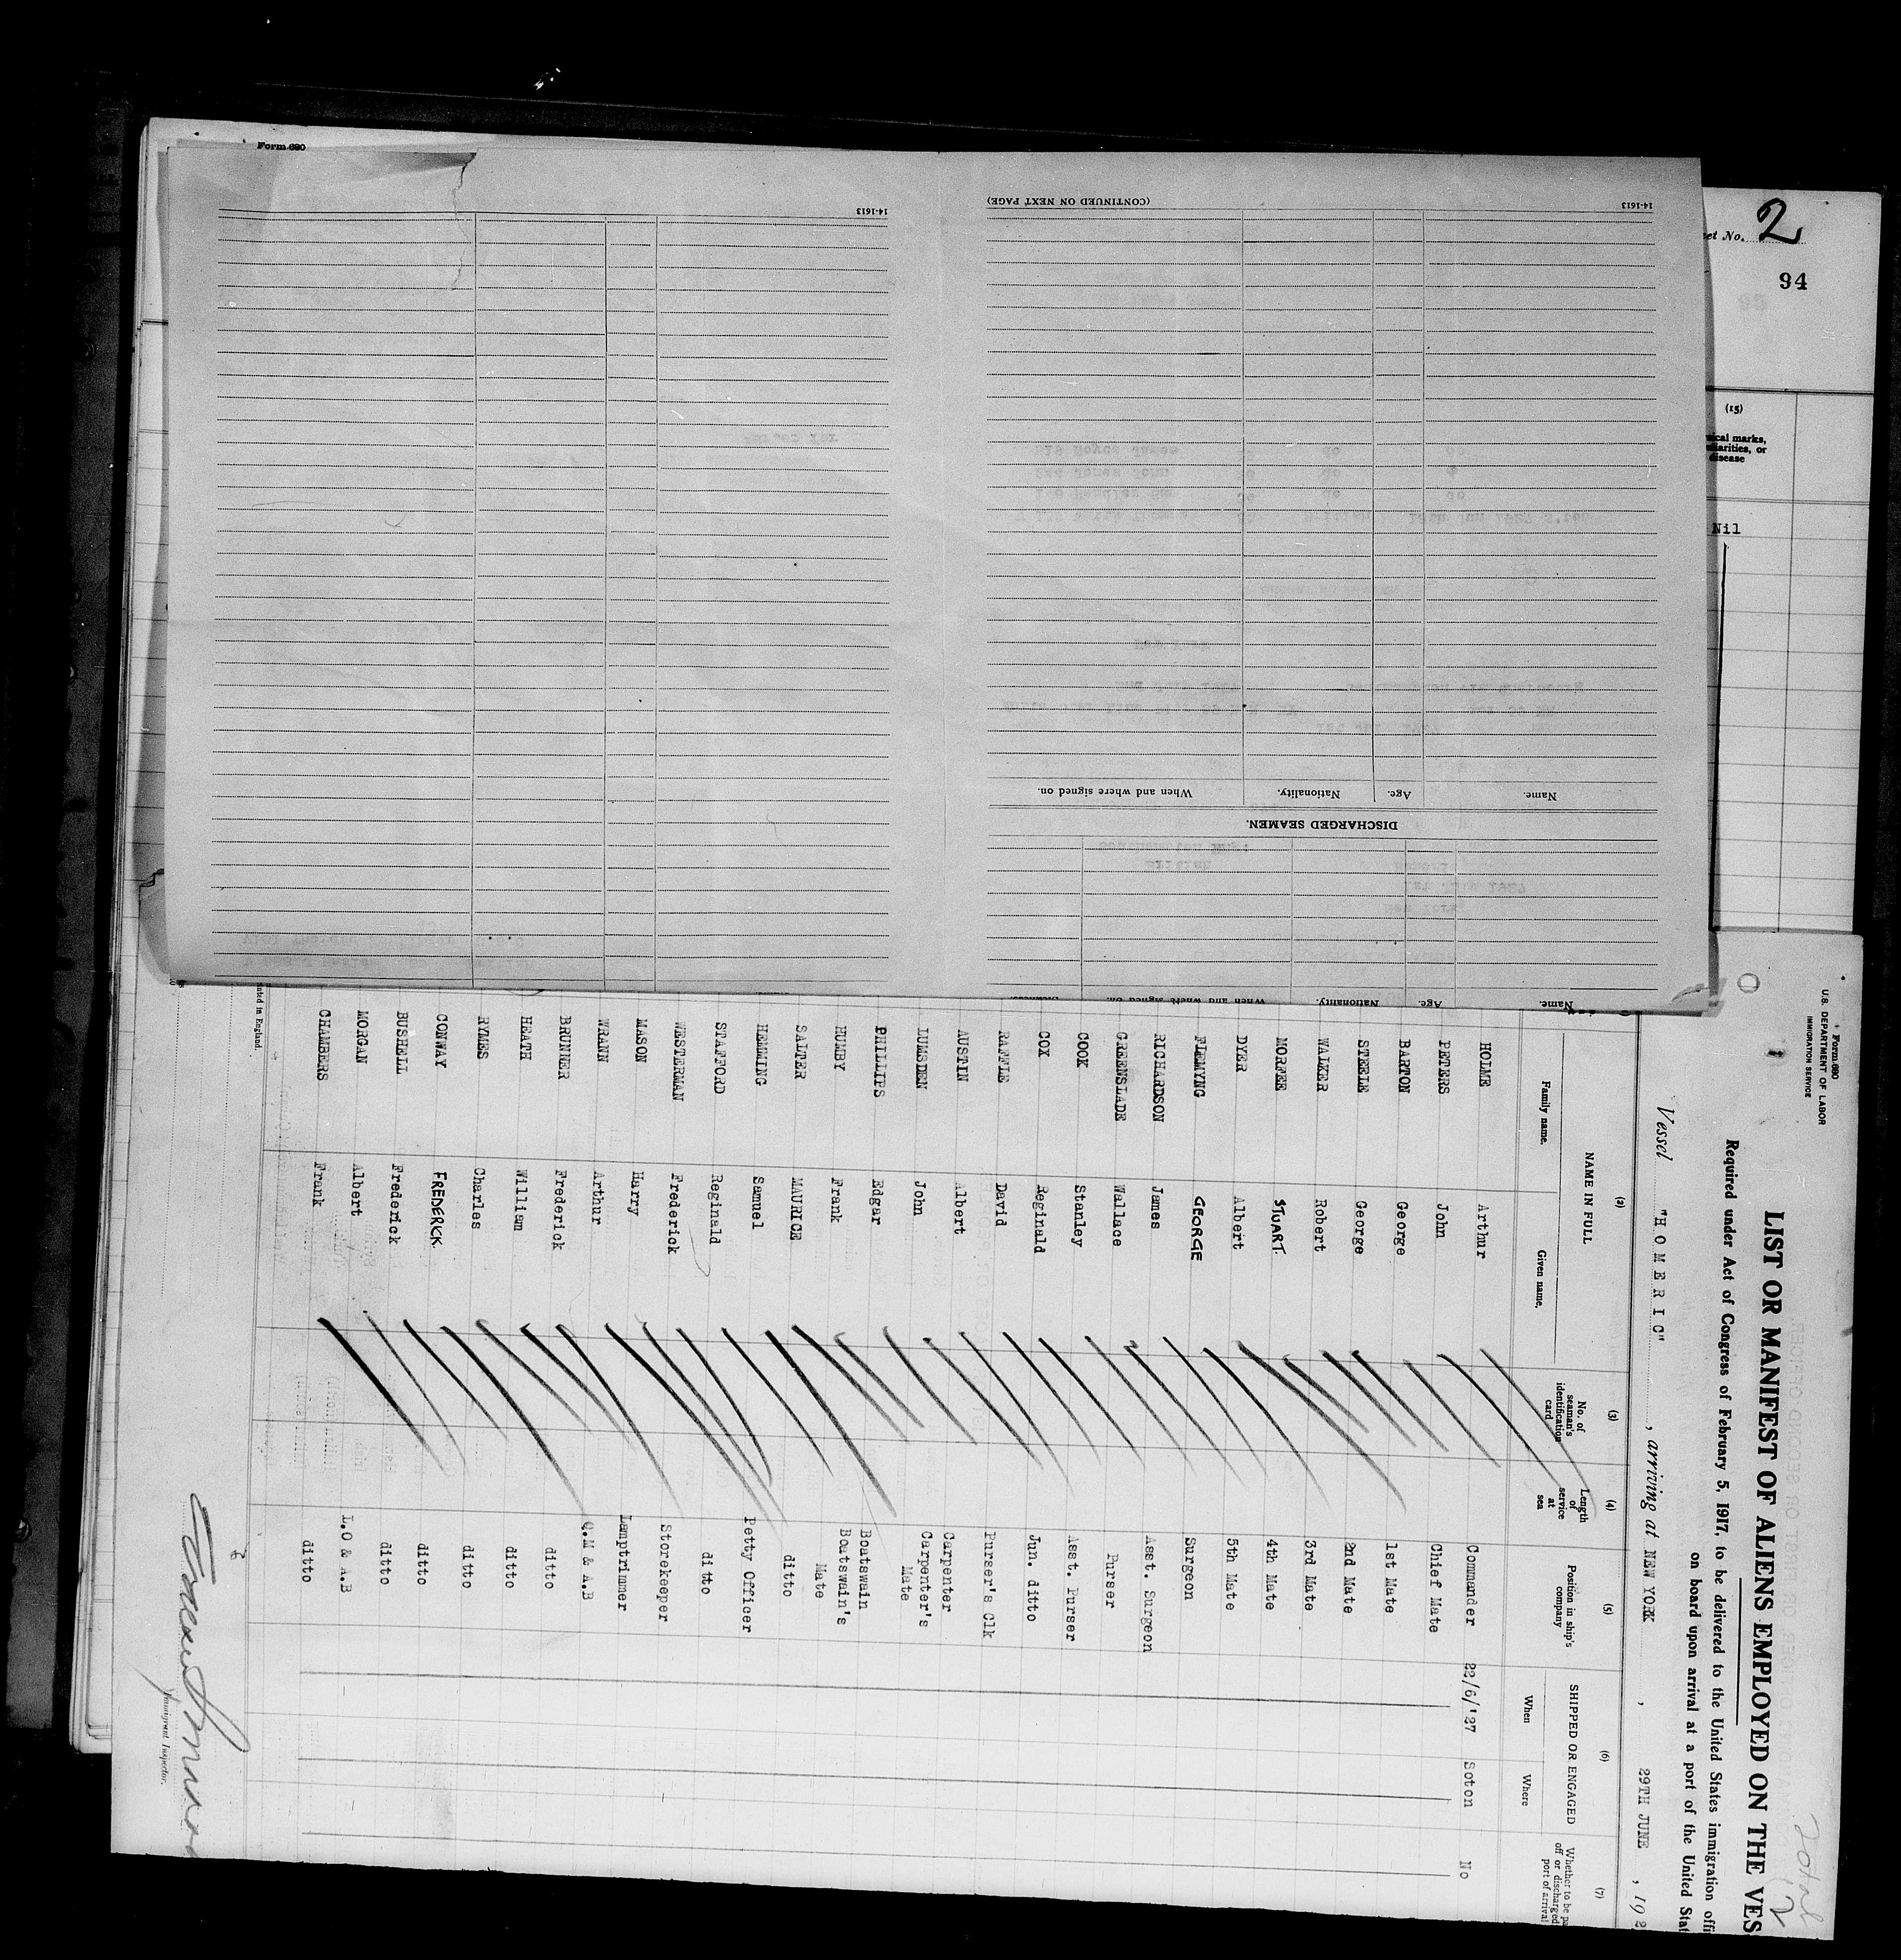 Form 680
14-1613
(CONTINUED ON NEXT PAGE)
14-1613
Name.
Age.
Nationality.
When and where signed on.
DISCHARGED SEAMEN.
Name.
Age.
Nationality.
When and where signed on.
2
94
(15)
disease
Nil
Form 680
U.S. DEPARTMENT OF LABOR
IMMIGRATION SERVICE
LIST OR MANIFEST OF ALIENS EMPLOYED ON THE VES
Required under Act of Congress of February 5, 1917, to be delivered to the United States immigration offi
on board upon arrival at a port of the United Stat
Vessel "HOMERIC", arriving at NEW YORK, 29TH JUNE, 192
(2) (3) (4) (5) (6) (7)
NAME IN FULL
Family name. Given name.
No. of seaman's identification card
Length of service at sea
Position in ship's company
SHIPPED OR ENGAGED
When Where
Whether to be pa
off or discharged
port of arrival
HOLME Arthur Commander 22/6/'27 Soton No
PETERS John Chief Mate
BARTON George 1st Mate
STEELE George 2nd Mate
WALKER Robert 3rd Mate
MORFEE STUART. 4th Mate
DYER Albert 5th Mate
FLEMYNG GEORGE Surgeon
RICHARDSON James Asst. Surgeon
GREENSLADE Wallace Purser
COOK Stanley Asst. Purser
COX Reginald Jun. ditto
RAFFLE David Purser's Clk
AUSTIN Albert Carpenter
LUMSDEN John Carpenter's Mate
PHILLIPS Edgar Boatswain
HUMBY Frank Boatswain's Mate
SALTER MAURICE ditto
HEMMING Samuel Petty Officer
STAFFORD Reginald ditto
WESTERMAN Frederick Storekeeper
MASON Harry Lamptrimmer
WRANN Arthur Q.M & A.B
BRUNNER Frederick ditto
HEATH William ditto
RYMES Charles ditto
CONWAY FREDERCK. ditto
BUSHELL Frederick ditto
MORGAN Albert L.O & A.B
CHAMBERS Frank ditto
Immigrant Inspector.